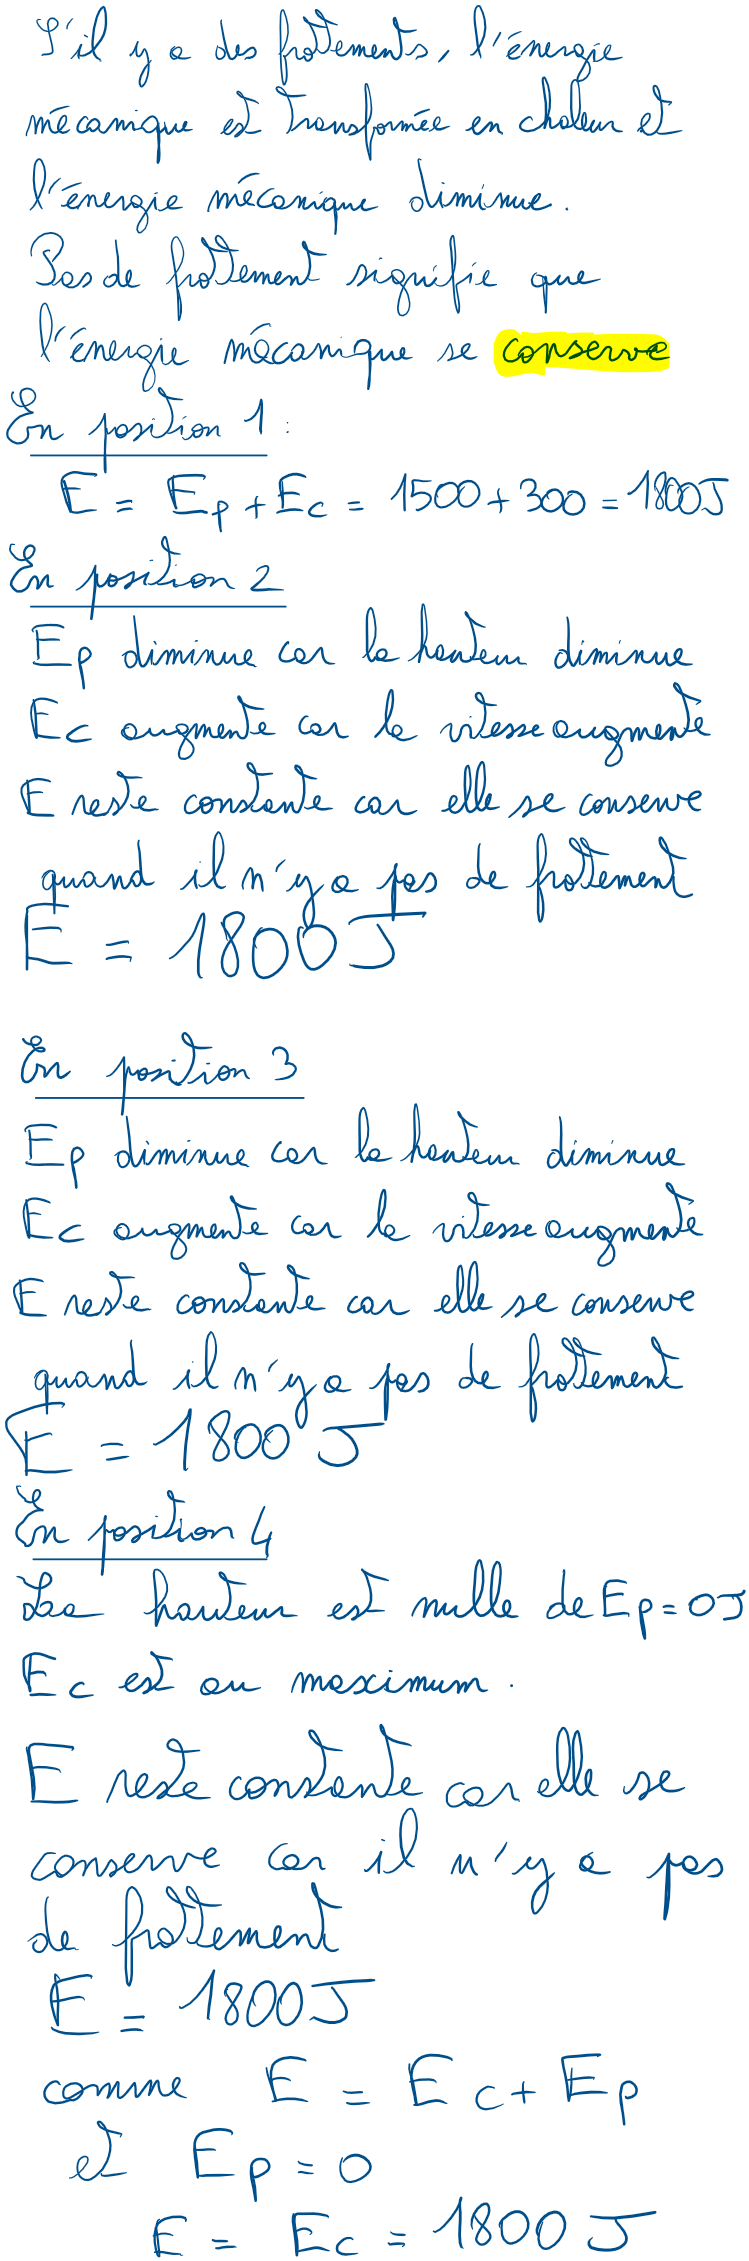 S'il y a des frottements, l'énergie
mécanique est transformée en chaleur et
l'énergie mécanique diminue.
Pas de frottement signifie que
l'énergie mécanique se conserve
En position 1 :
E = Ep + Ec = 1500 + 300 = 1800 J
En position 2
Ep diminue car la hauteur diminue
Ec augmente car la vitesse augmente
E reste constante car elle se conserve
quand il n'y a pas de frottement
E = 1800 J
En position 3
Ep diminue car la hauteur diminue
Ec augmente car la vitesse augmente
E reste constante car elle se conserve
quand il n'y a pas de frottement
E = 1800 J
En position 4
La hauteur est nulle de Ep = 0 J
Ec est au maximum.
E reste constante car elle se
conserve car il n'y a pas
de frottement
E = 1800 J
comme E = Ec + Ep
et Ep = 0
E = Ec = 1800 J